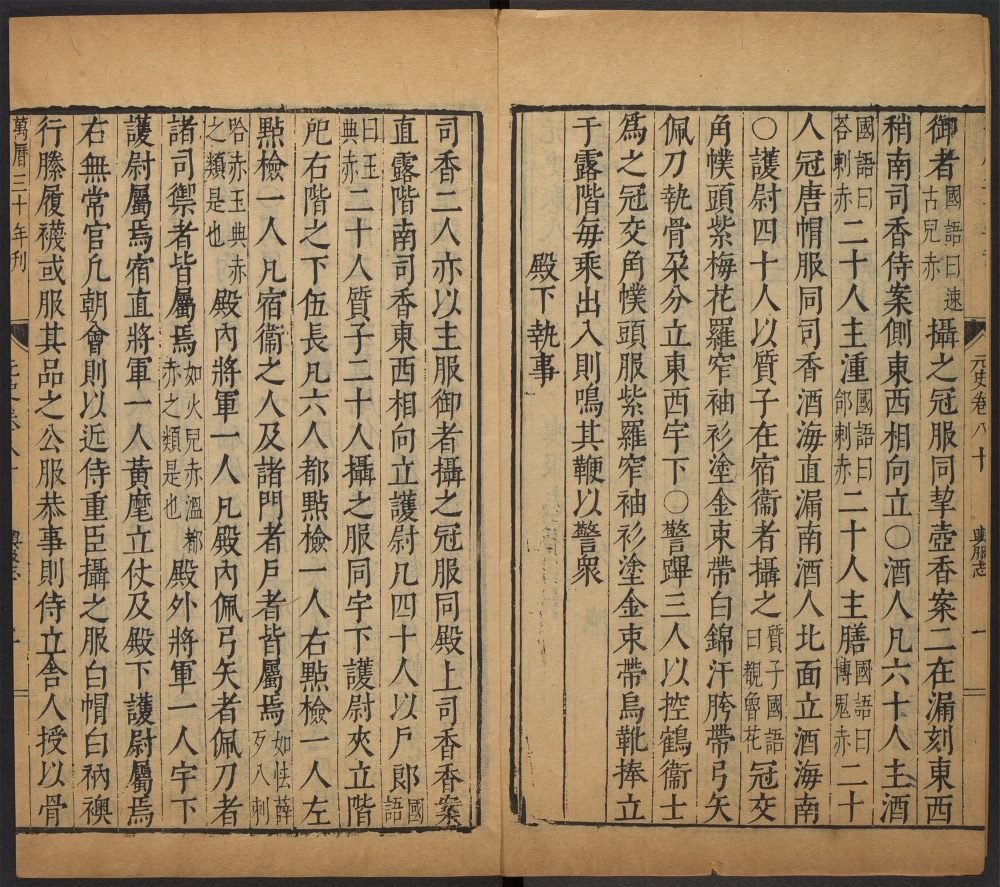 元史卷八十 輿服志 一
御者國語曰速古兒赤攝之冠服同挈壺香案二在漏刻東西
稍南司香侍案側東西相向立〇酒人凡六十人主酒
國語曰荅剌赤二十人主湩國語曰郃剌赤二十人主膳國語曰博兒赤二十
人冠唐帽服同司香酒海直漏南酒人北面立酒海南
〇護尉四十人以質子在宿衞者攝之質子國語曰覩魯花冠交
角幞頭紫梅花羅窄袖衫塗金束帶白錦汗胯帶弓矢
佩刀執骨朶分立東西宇下〇警蹕三人以控鶴衞士
爲之冠交角幞頭服紫羅窄袖衫塗金束帶烏靴捧立
于露階每乘出入則鳴其鞭以警衆
殿下執事
司香二人亦以主服御者攝之冠服同殿上司香香案
直露階南司香東西相向立護尉凡四十人以戶郎國語
曰玉典赤二十人質子二十人攝之服同宇下護尉夾立階
戺右階之下伍長凡六人都點檢一人右點檢一人左
點檢一人凡宿衞之人及諸門者戶者皆屬焉如怯薛歹八剌
哈赤玉典赤之類是也殿內將軍一人凡殿內佩弓矢者佩刀者
諸司禦者皆屬焉如火兒赤溫都赤之類是也殿外將軍一人宇下
護尉屬焉宿直將軍一人黃麾立仗及殿下護尉屬焉
右無常官凡朝會則以近侍重臣攝之服白帽白衲襖
行縢履襪或服其品之公服恭事則侍立舍人授以骨
萬曆三十年刊